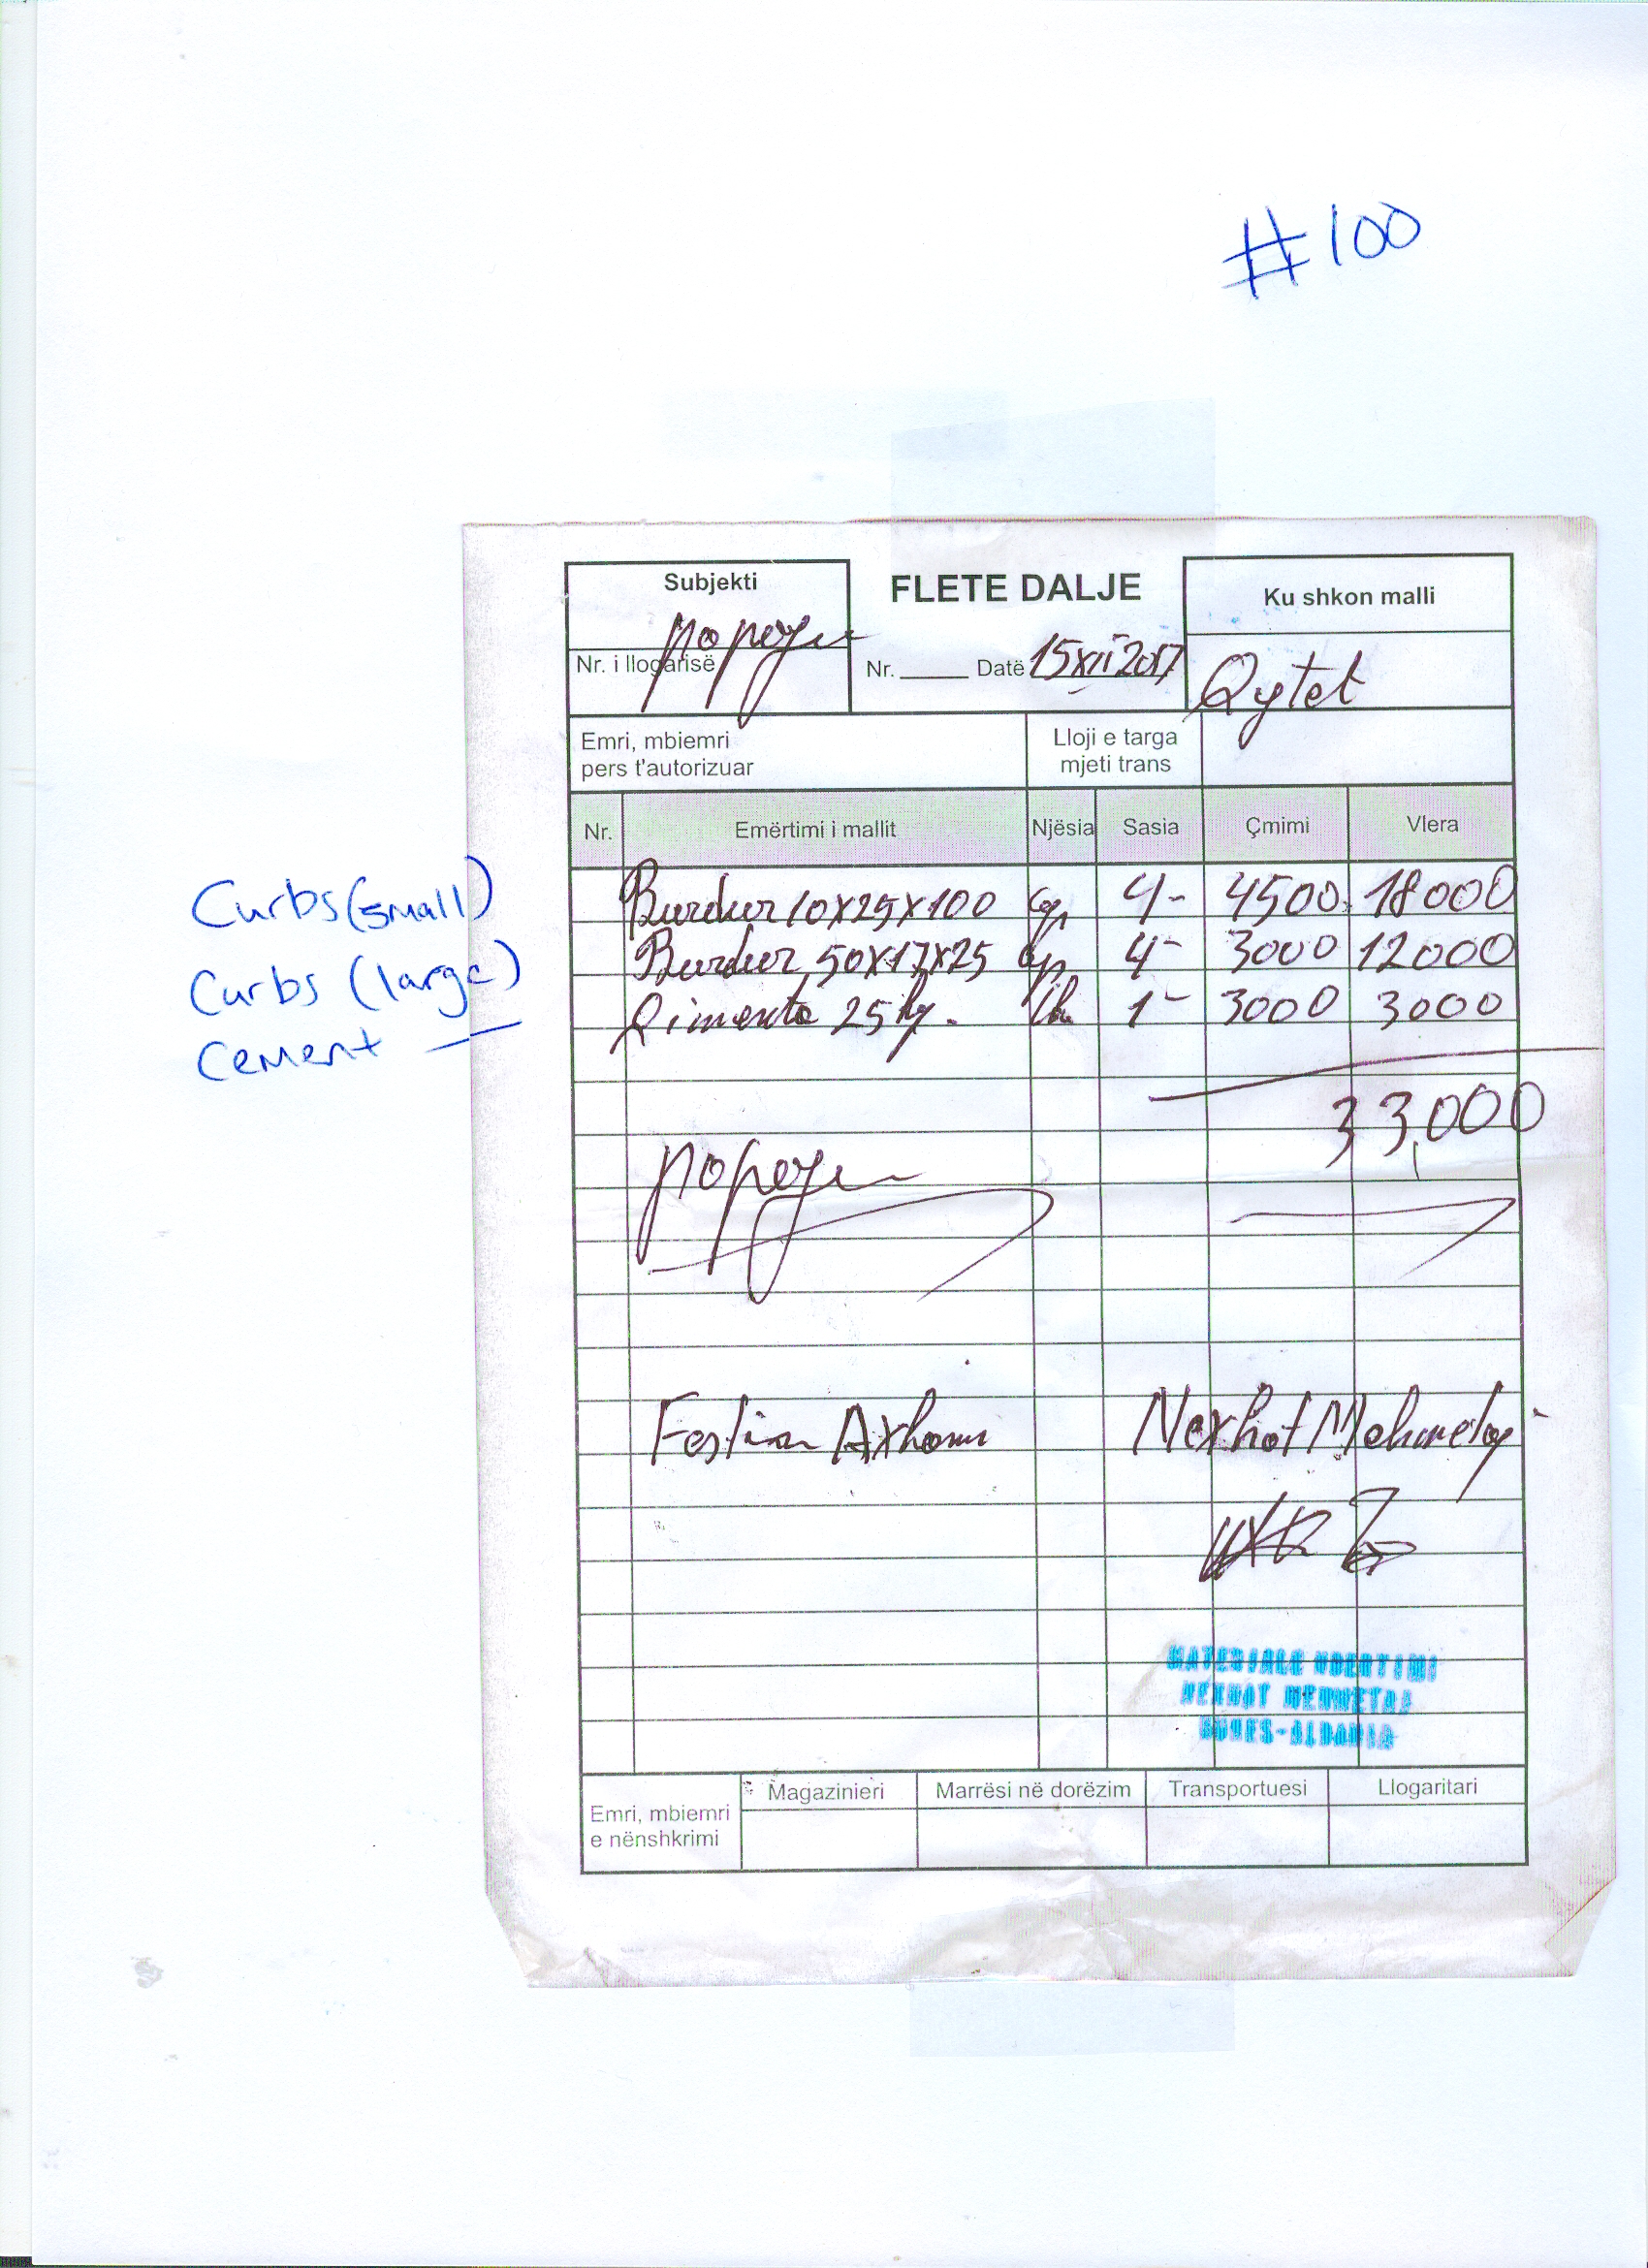 #100
Subjekti
FLETE DALJE
Ku shkon malli
Nr. i llogarisë
Nr. Datë 15 XII 2017
Qytet
Emri, mbiemri
pers t'autorizuar
Lloji e targa
mjeti trans
Nr. Emërtimi i mallit Njësia Sasia Çmimi Vlera
Curbs (small) Burdur 10x25x100 cp 4- 4500 18000
Curbs (large) Burdur 50x17x25 cp 4- 3000 12000
Cement Qimento 25 kg. 1- 3000 3000
33,000
Nexhat
MATERIALE NDERTIMI
NEXHAT MEHMETAJ
Magazinieri Marrësi në dorëzim Transportuesi Llogaritari
Emri, mbiemri
e nënshkrimi